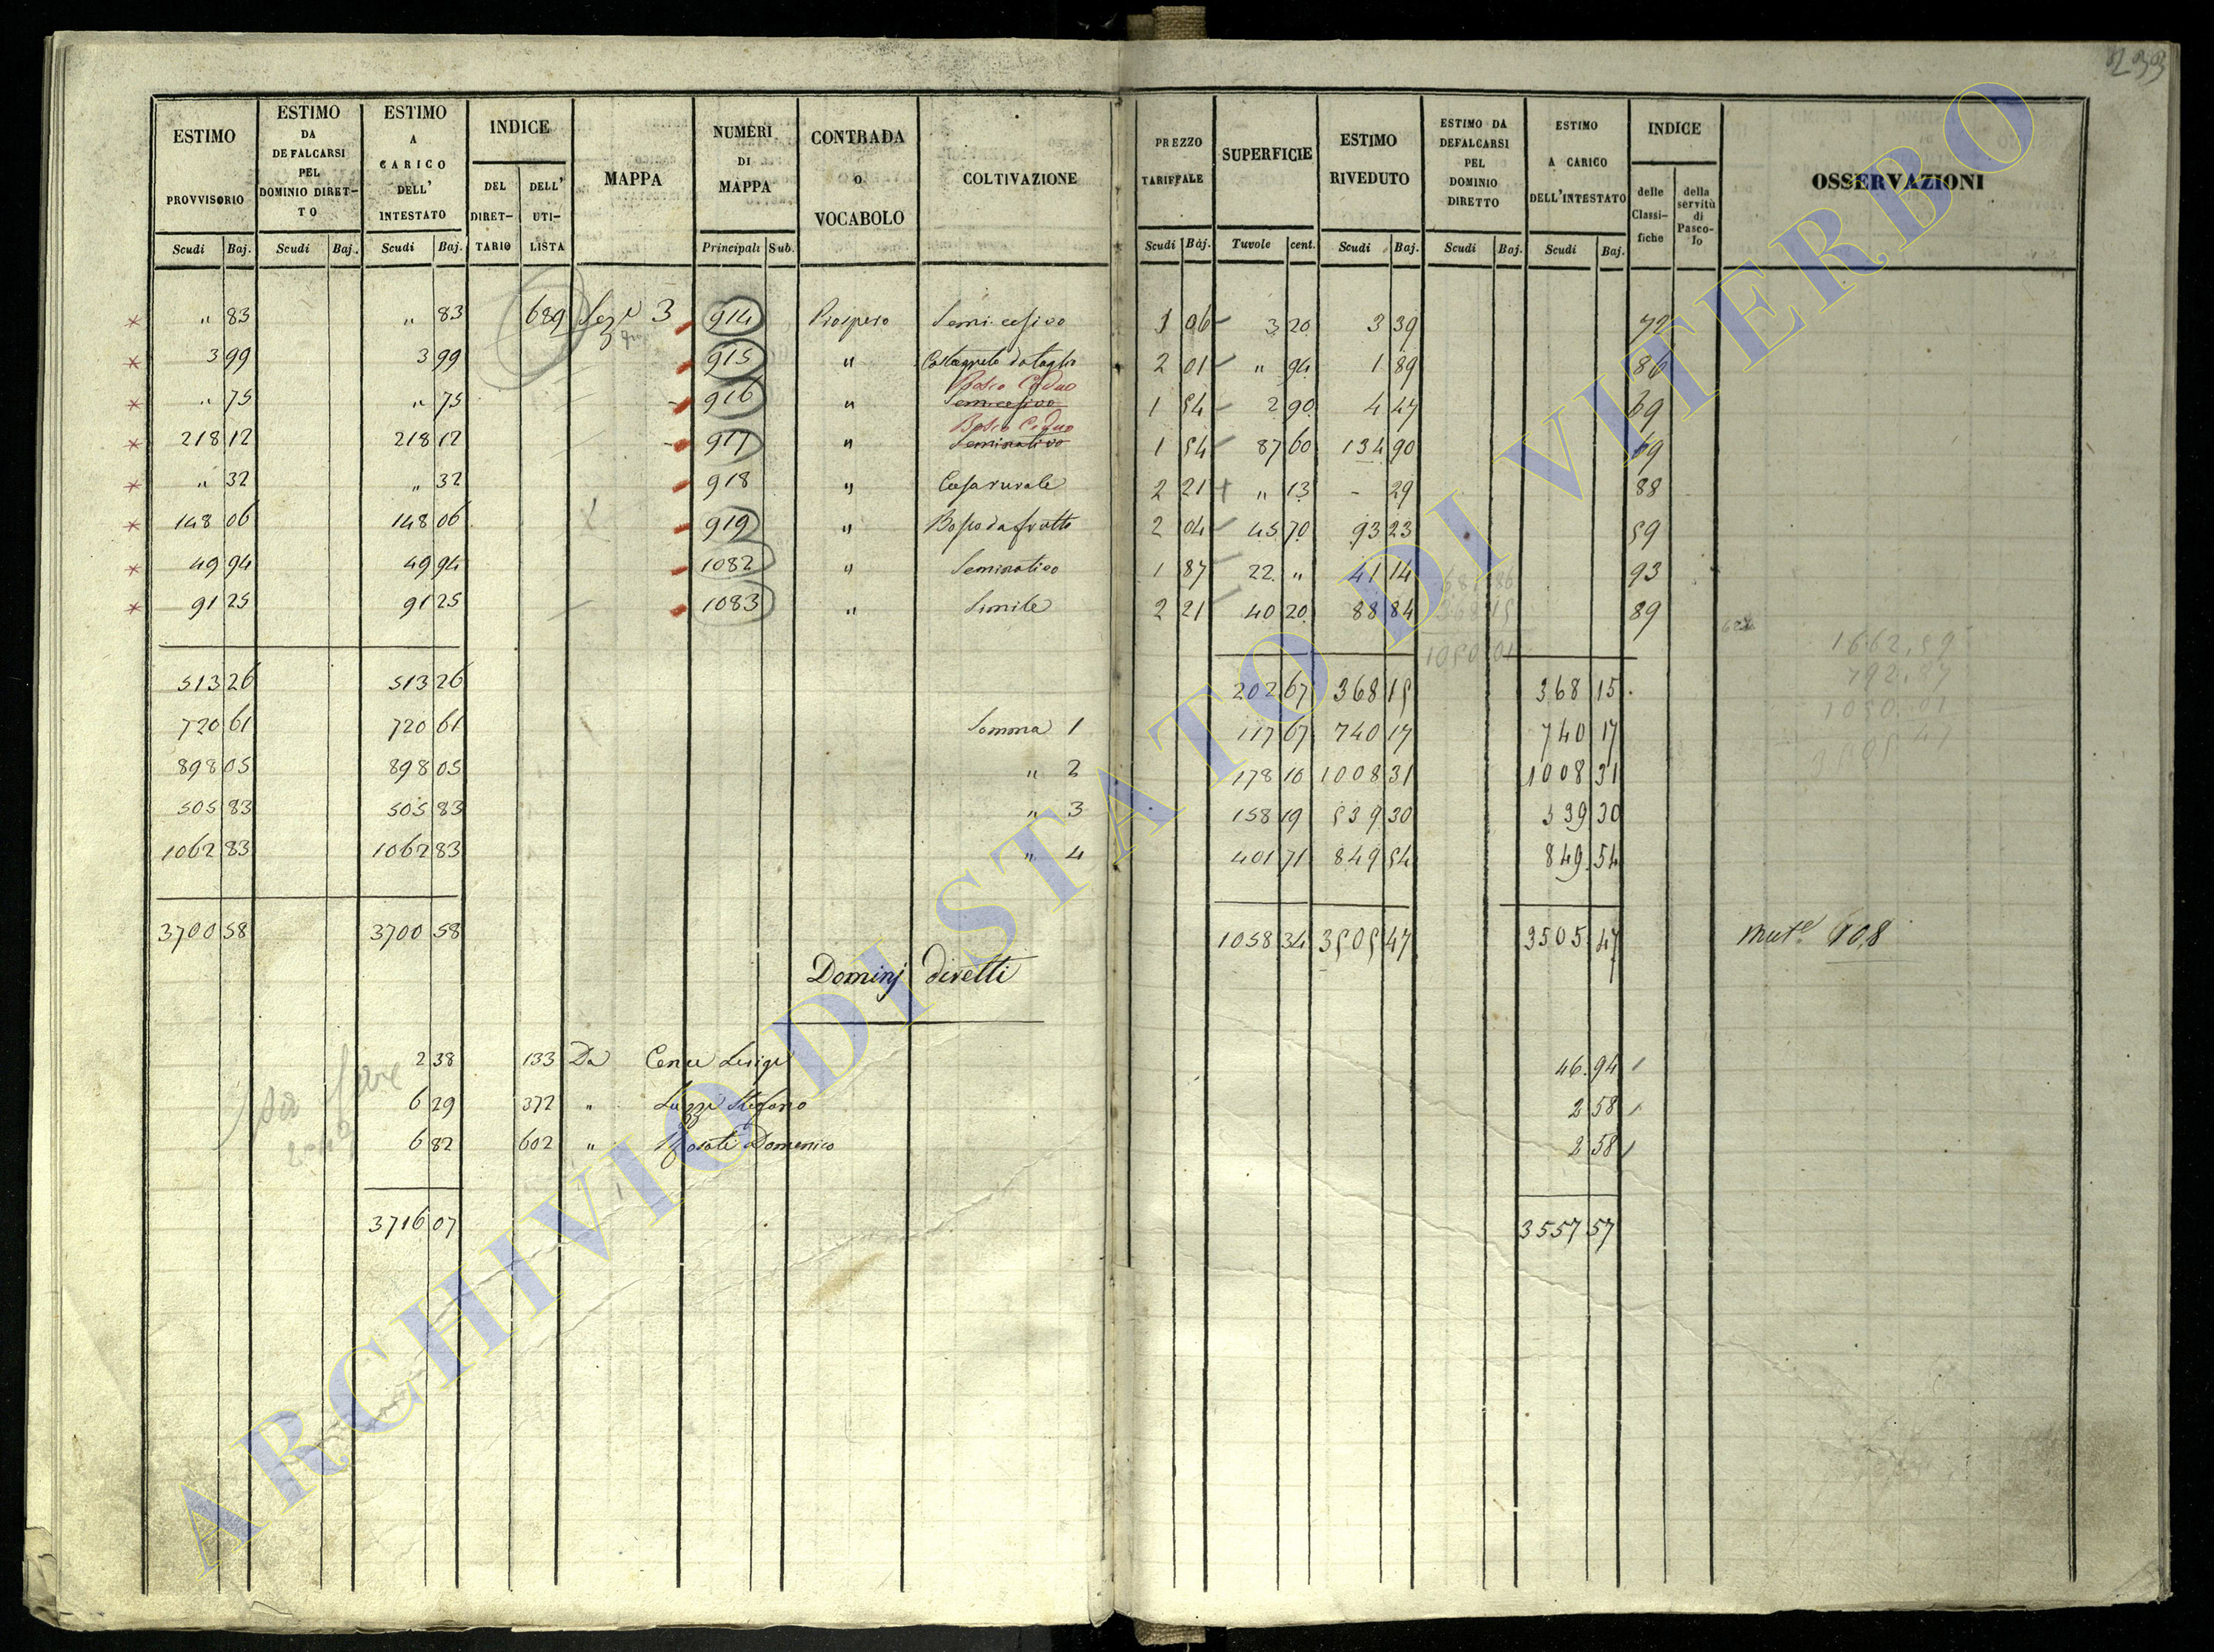 233
ESTIMO PROVVISORIO Scudi Baj.
ESTIMO DA DEFALCARSI PEL DOMINIO DIRET-TO Scudi Baj.
ESTIMO A CARICO DELL' INTESTATO Scudi Baj.
INDICE DEL DIRET-TARIO DELL' UTI-LISTA
MAPPA
NUMERI DI MAPPA Principali Sub.
CONTRADA o VOCABOLO
COLTIVAZIONE
PREZZO TARIFFALE Scudi Baj.
SUPERFICIE Tavole cent.
ESTIMO RIVEDUTO Scudi Baj.
ESTIMO DA DEFALCARSI PEL DOMINIO DIRETTO Scudi Baj.
ESTIMO A CARICO DELL'INTESTATO Scudi Baj.
INDICE delle Classi-fiche della servitù di Pasco-lo
OSSERVAZIONI
* " 83 " 83 689 Sez.e 3 914 Prospero Semi.cesivo 1 06 3 20 3 39 72
* 3 99 3 99 915 " Castagneto da taglio 2 01 " 94 1 89 86
Bosco Ceduo
* " 75 " 75 916 " Semicesivo 1 54 2 90 4 47 69
Bosco Ceduo
* 218 12 218 12 917 " Seminativo 1 54 87 60 134 90 69
* " 32 " 32 918 " Casa rurale 2 21 " 13 - 29 88
* 148 06 148 06 919 " Bosco da frutto 2 04 45 70 93 23 59
* 49 94 49 94 1082 " Seminativo 1 87 22 " 41 14 93
* 91 25 91 25 1083 " Simile 2 21 40 20 88 84 89
681 86
368 15
1050 01
1662,59
792.87
1050.01
3505 47
513 26 513 26 202 67 368 15 368 15
720 61 720 61 Somma 1 117 67 740 17 740 17
898 05 898 05 " 2 178 10 1008 31 1008 31
505 83 505 83 " 3 158 19 539 30 539 30
1062 83 1062 83 " 4 401 71 849 54 849.54
3700 58 3700 58 1058 34 3505 47 3505 47 108
Dominj diretti
2 38 133 Da Luigi 46.94
6 29 372 " Luzzi Stefano 2 58
6 82 602 " Domenico 2 58
3716 07 3557 57
ARCHIVIO DI STATO DI VITERBO